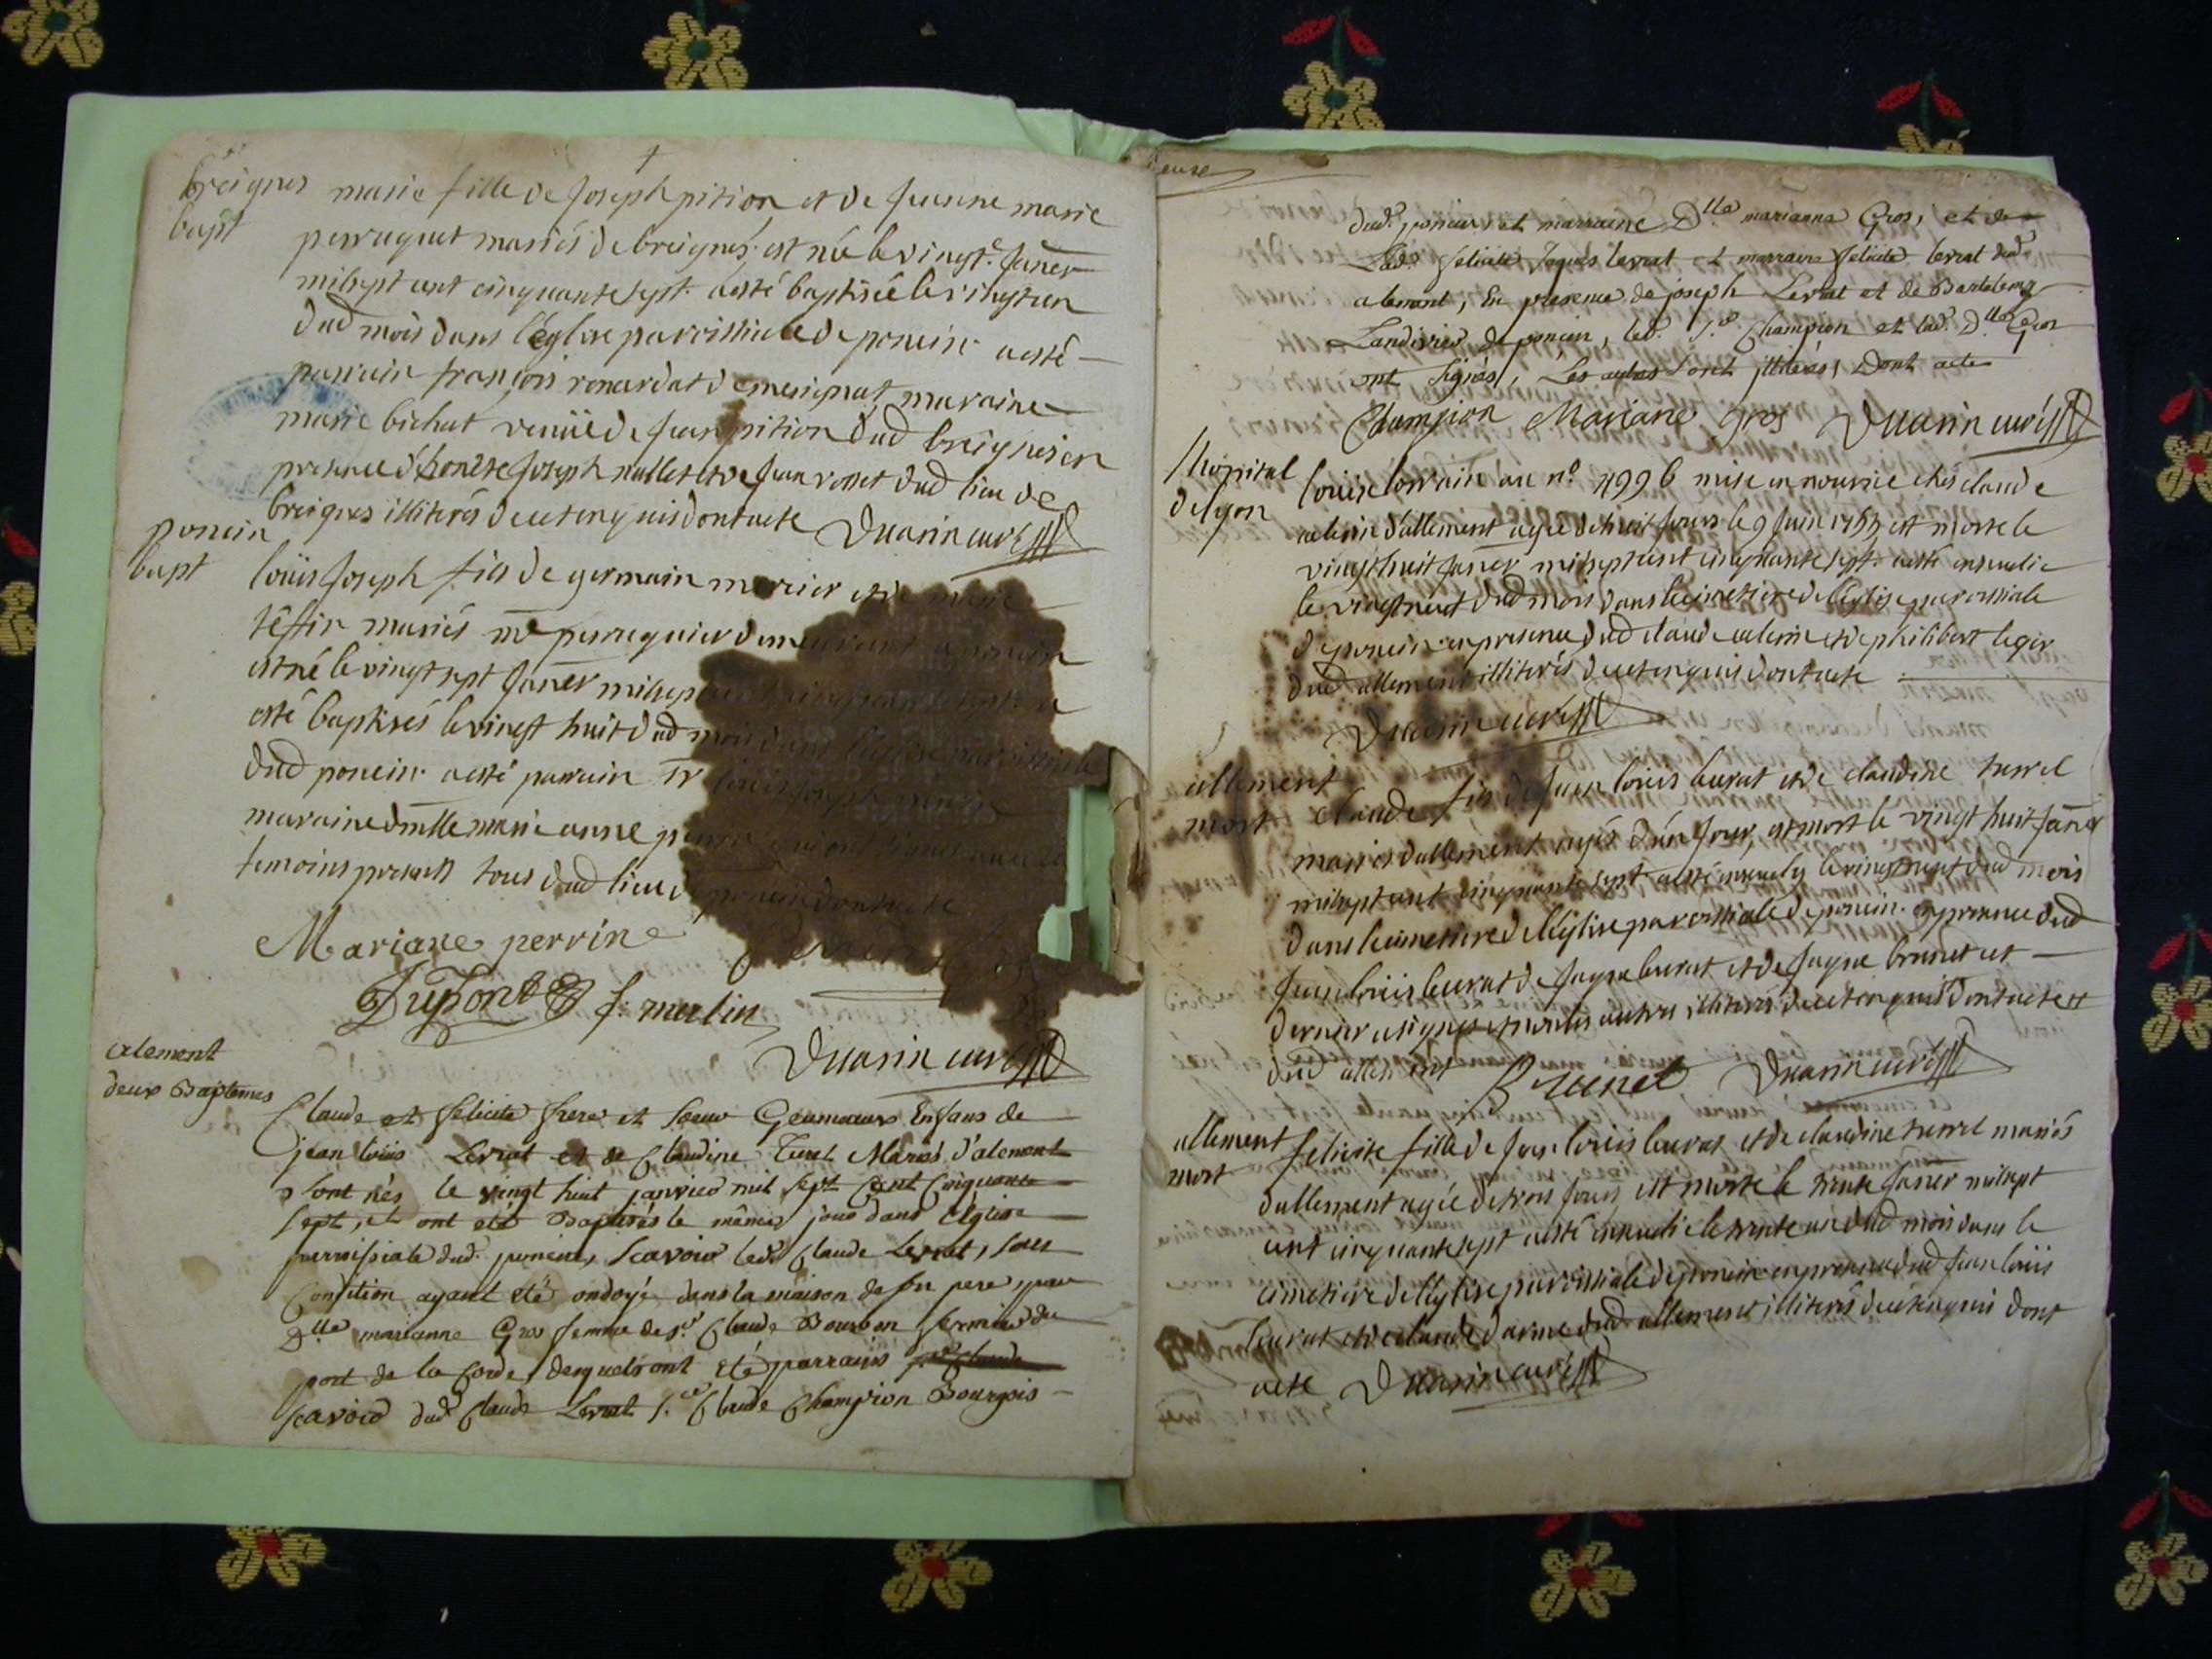 breignes
bapt
marie fille de Joseph pition et de Jeanne marie
perruquet mariés de breignes. est née le vingt. Janer
mil sept cent cinquante sept. a esté baptisée le vingt un
dud mois dans l'église parroissiale de poncin. a esté
parrain françois renardat de mesignat maraine
marie bichat de Jean pition dud breignes en
presence d'honete Joseph nallet et de Jean rosset dud lieu de
breignes illiterés de ce enquis dont acte Duarin curé
poncin
bapt
loüis Joseph fils de germain mercier et de marie
tessir mariés me perruquier demeurant a poncin
est né le vingt sept Janer mil sept cent cinquante sept a
esté baptisés le vingt huit dud mois dans l'église parroissiale
dud poncin. a esté parrain sr loüis Joseph
maraine dmlle marie anne perrine qui ont signés avec les
temoins presents tous dud lieu de poncin dont acte
Mariane perrine
Dupont f. merlin
Duarin curé
alement
deux Baptemes
Claude et felicité frere et soeur Gemeaux Enfans de
jean loüis Levrat et de Claudine Turel Mariés d'alement
sont nés le vingt huit janvier mil sept Cent Cinquante
sept, et ont eté Baptisés le même jour dans l'église
parroissiale dud. poncin, scavoir led. Claude Levrat, sous
Condition ayant eté ondoyé dans la maison de son pere par
Dlle marianne Gros femme de sr Claude Bourbon fermier du
port de la Corde, desquels ont eté parrains
scavoir dud Claude Levrat sr Claude Champion Bourgois
dud. poncin et marraine Dlle marianne Gros, et de
Lad. félicité Jaques levrat et marraine felicité levrat dud
alement, En presence de joseph Levrat et de Bartelemy
Landivier de poncin, led. sr Champion et lad. Dlle Gros
ont signés, Les autres sont illiterés, Dont acte
Champion Mariane gros Duarin curé
l'hopital
de lyon
louise lorrain au no. 4996 mise en nourrice chés claude
d'allement agée de huit Jours le 9 Juin est morte le
vingt huit Janer mil sept cent cinquante sept. a esté ensevelie
le vingt neuf dud mois dans le cimetiere de l'église parroissiale
de poncin en presence dud claude et de philibert leger
dud allement illiterés de ce enquis dont acte
Duarin curé
allement
mort
claude fils de Jean loüis levrat et de claudine turrel
mariés d'allement agé d'un Jour, est mort le vingt huit Janer
mil sept cent cinquante sept a esté ensevely le vingt neuf dud mois
dans le cimetiere de l'église parroissiale de poncin. en presence dud
Jean loüis levrat de Jaque levrat et de Jaque brunet cet
dernier a signes et non les autres illiterés de ce enquis dont acte
dud allement Brunet Duarin curé
allement
mort
felicité fille de Jean loüis levrat et de claudine turrel mariés
d'allement agée de trois Jours est morte le trente Janer mil sept
cent cinquante sept a esté ensevelie le trente un dud mois dans le
cimetiere de l'église parroissiale de poncin en presence dud Jean loüis
levrat et de claude darme dud allement illiterés de ce enquis dont
acte Duarin curé